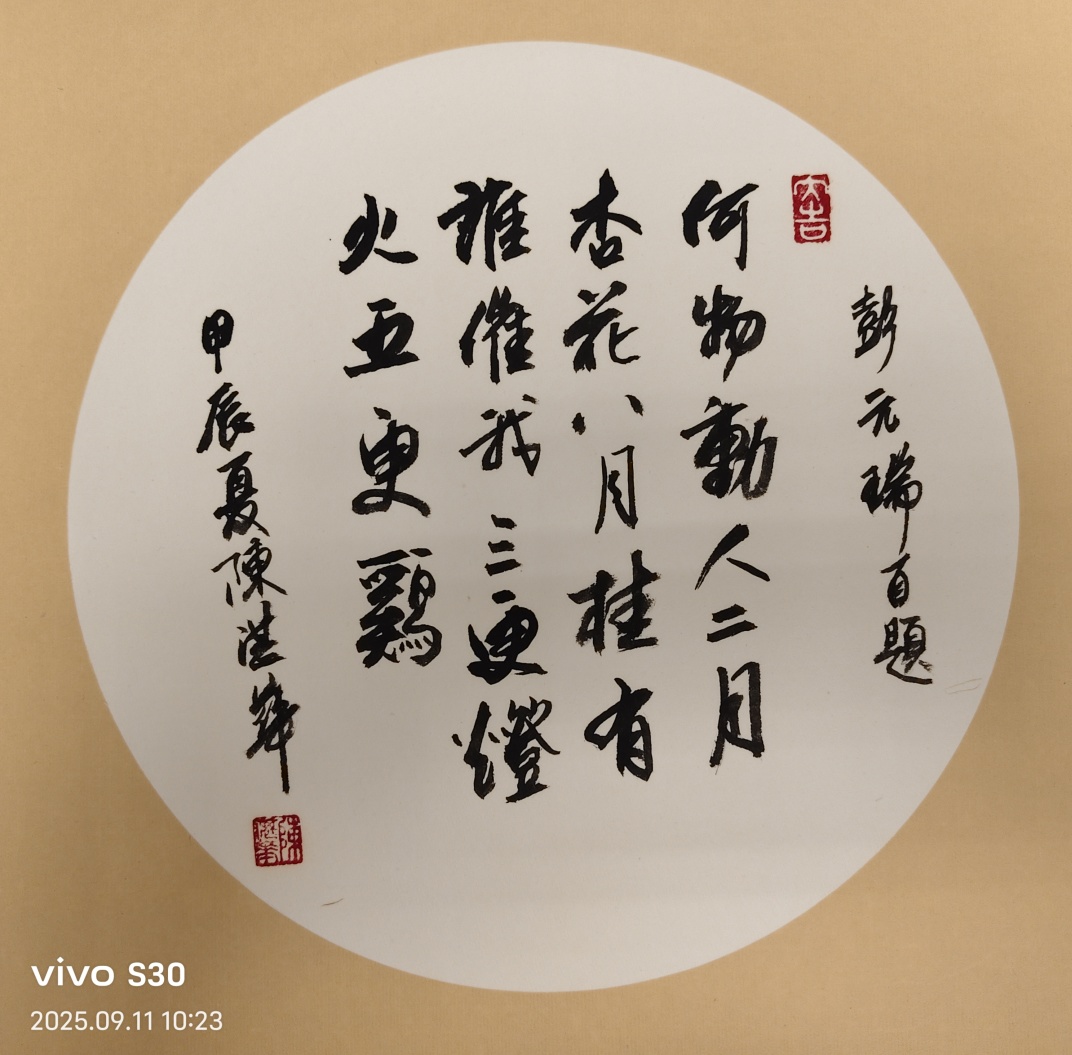 大吉
彭元瑞百題
何物動人二月
杏花八月桂有
誰催我三更燈
火五更鷄
甲辰夏陳
vivo S30
2025.09.11 10:23